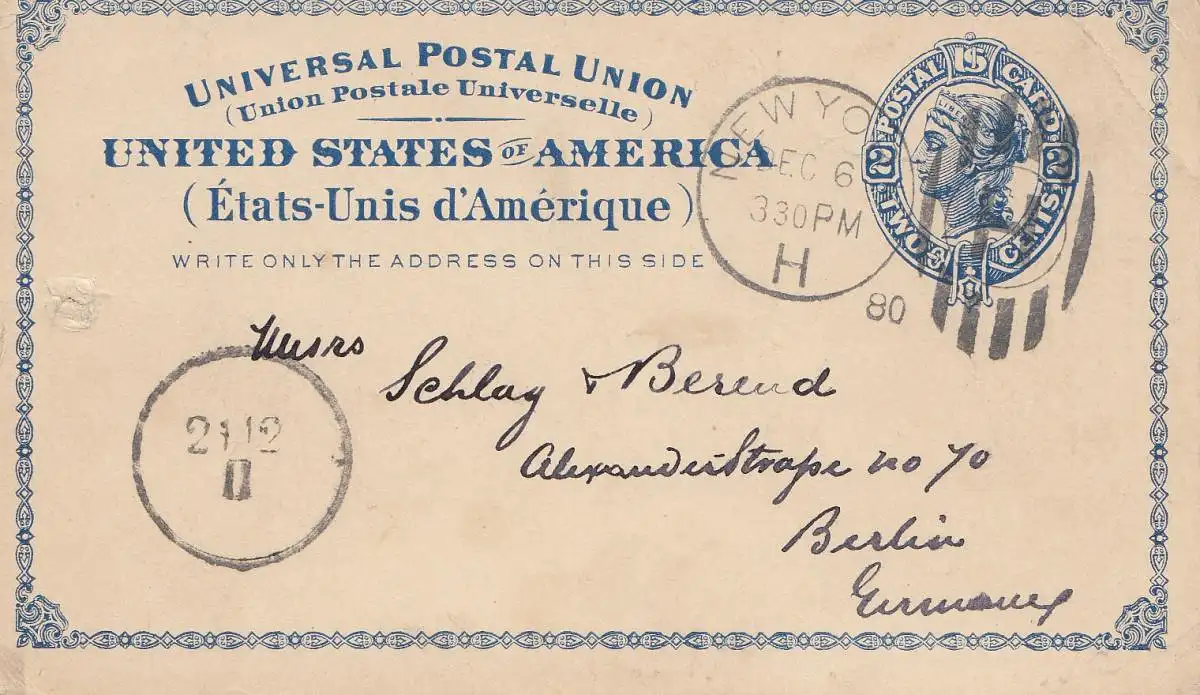 UNIVERSAL POSTAL UNION
(Union Postale Universelle)
UNITED STATES OF AMERICA
(États-Unis d'Amérique)
WRITE ONLY THE ADDRESS ON THIS SIDE
U.S. POSTAL CARD
2 2
TWO CENTS
LIBERTY
NEW YO
DEC 6
330PM
H
80
Messrs
Schlag & Berend
Alexanderstraße no 70
Berlin
Germany
21 12